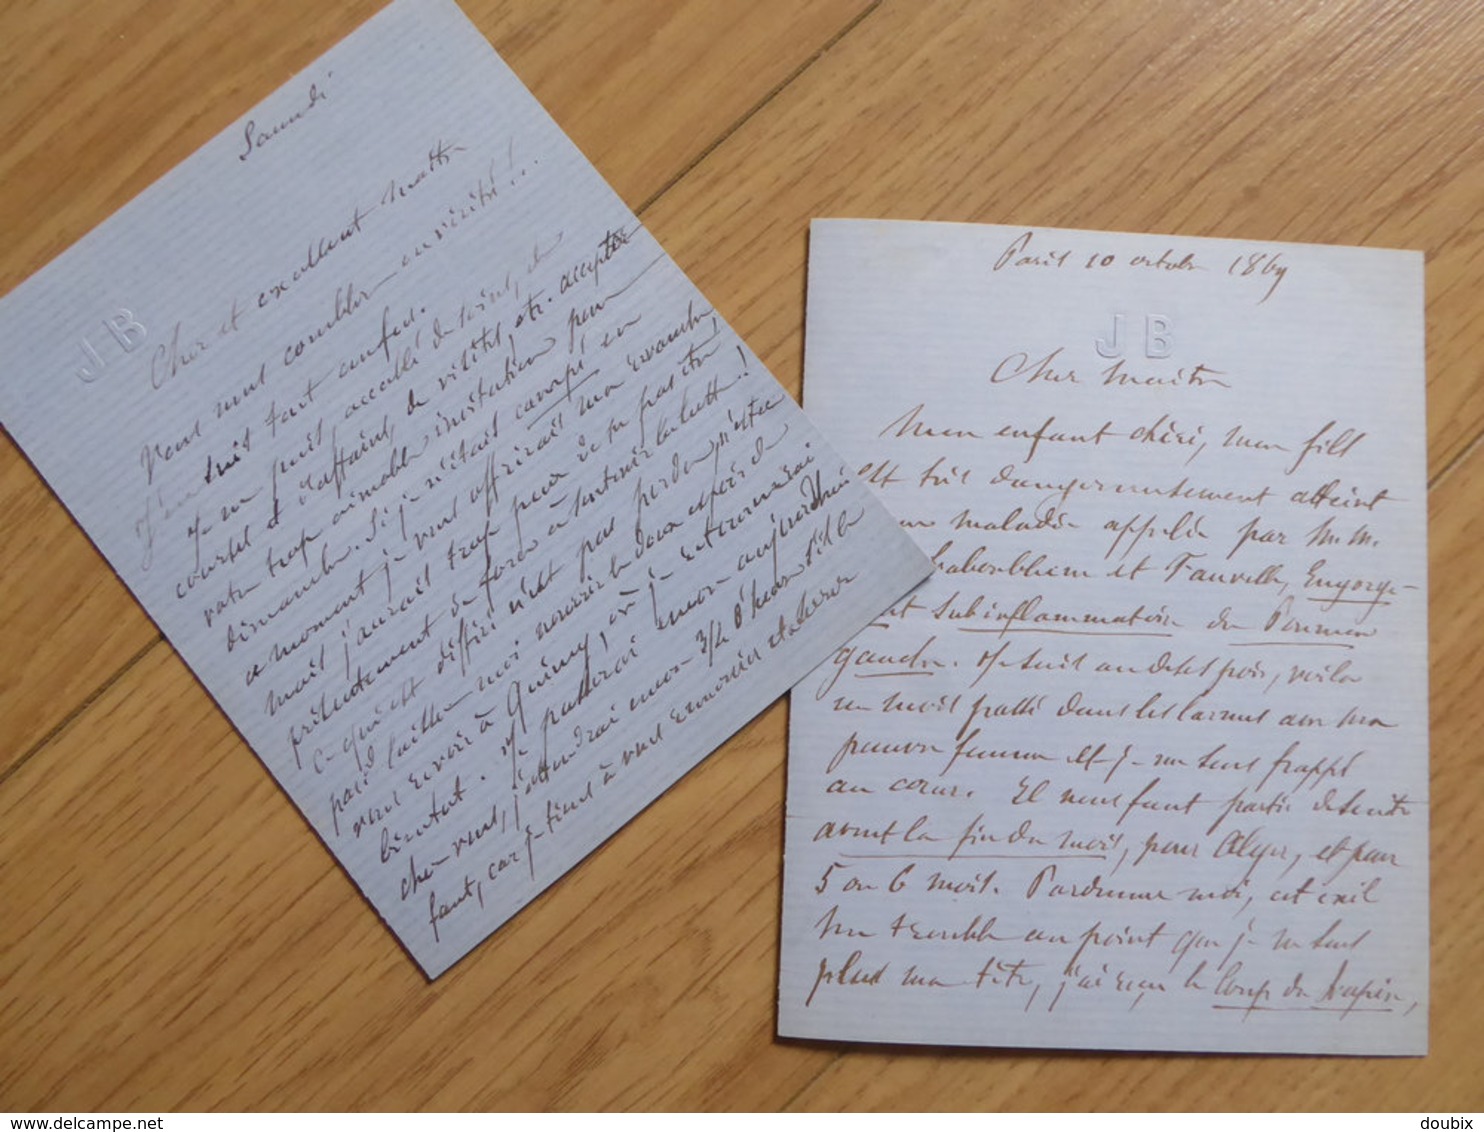 Samedi
JB
Cher et excellent Maître
Vous nous comblez en vérité!..
J'en suis tout confus.
Je ne puis, accablé de soins, de
courses et d'affaires, de visites, etc. accepter
votre trop aimable invitation pour
dimanche. Si je n'étais campé en
ce moment je vous offrirais ma revanche,
mais j'aurais trop peur de ne pas être
présentement de force à soutenir la lutte!
Ce qui est différé n'est pas perdu, n'est ce
pas? laissez-moi nourrir le doux espoir de
vous revoir à Quincy, où je retournerai
bientôt. Je passerai encore aujourd'hui
chez vous, j'attendrai encore 3/4 d'heure s'il le
faut, car je tiens à vous remercier et à serrer
Paris 10 octobre 1869
JB
Cher Maître
Mon enfant chéri, mon fils
est très dangereusement atteint
maladie appelée par M.M.
et Fauvelle, Engorge-
subinflammatoire du Poumon
gauche. Je suis au désespoir, voilà
un mois passé dans les larmes avec ma
pauvre femme et je me sens frappé
au cœur. Il nous faut partir de suite
avant la fin du mois, pour Alger, et pour
5 ou 6 mois. Pardonnez moi, cet exil
me trouble au point que je ne sens
plus ma tête, j'ai reçu le Coup du lapin,
delcampe.net
doubix